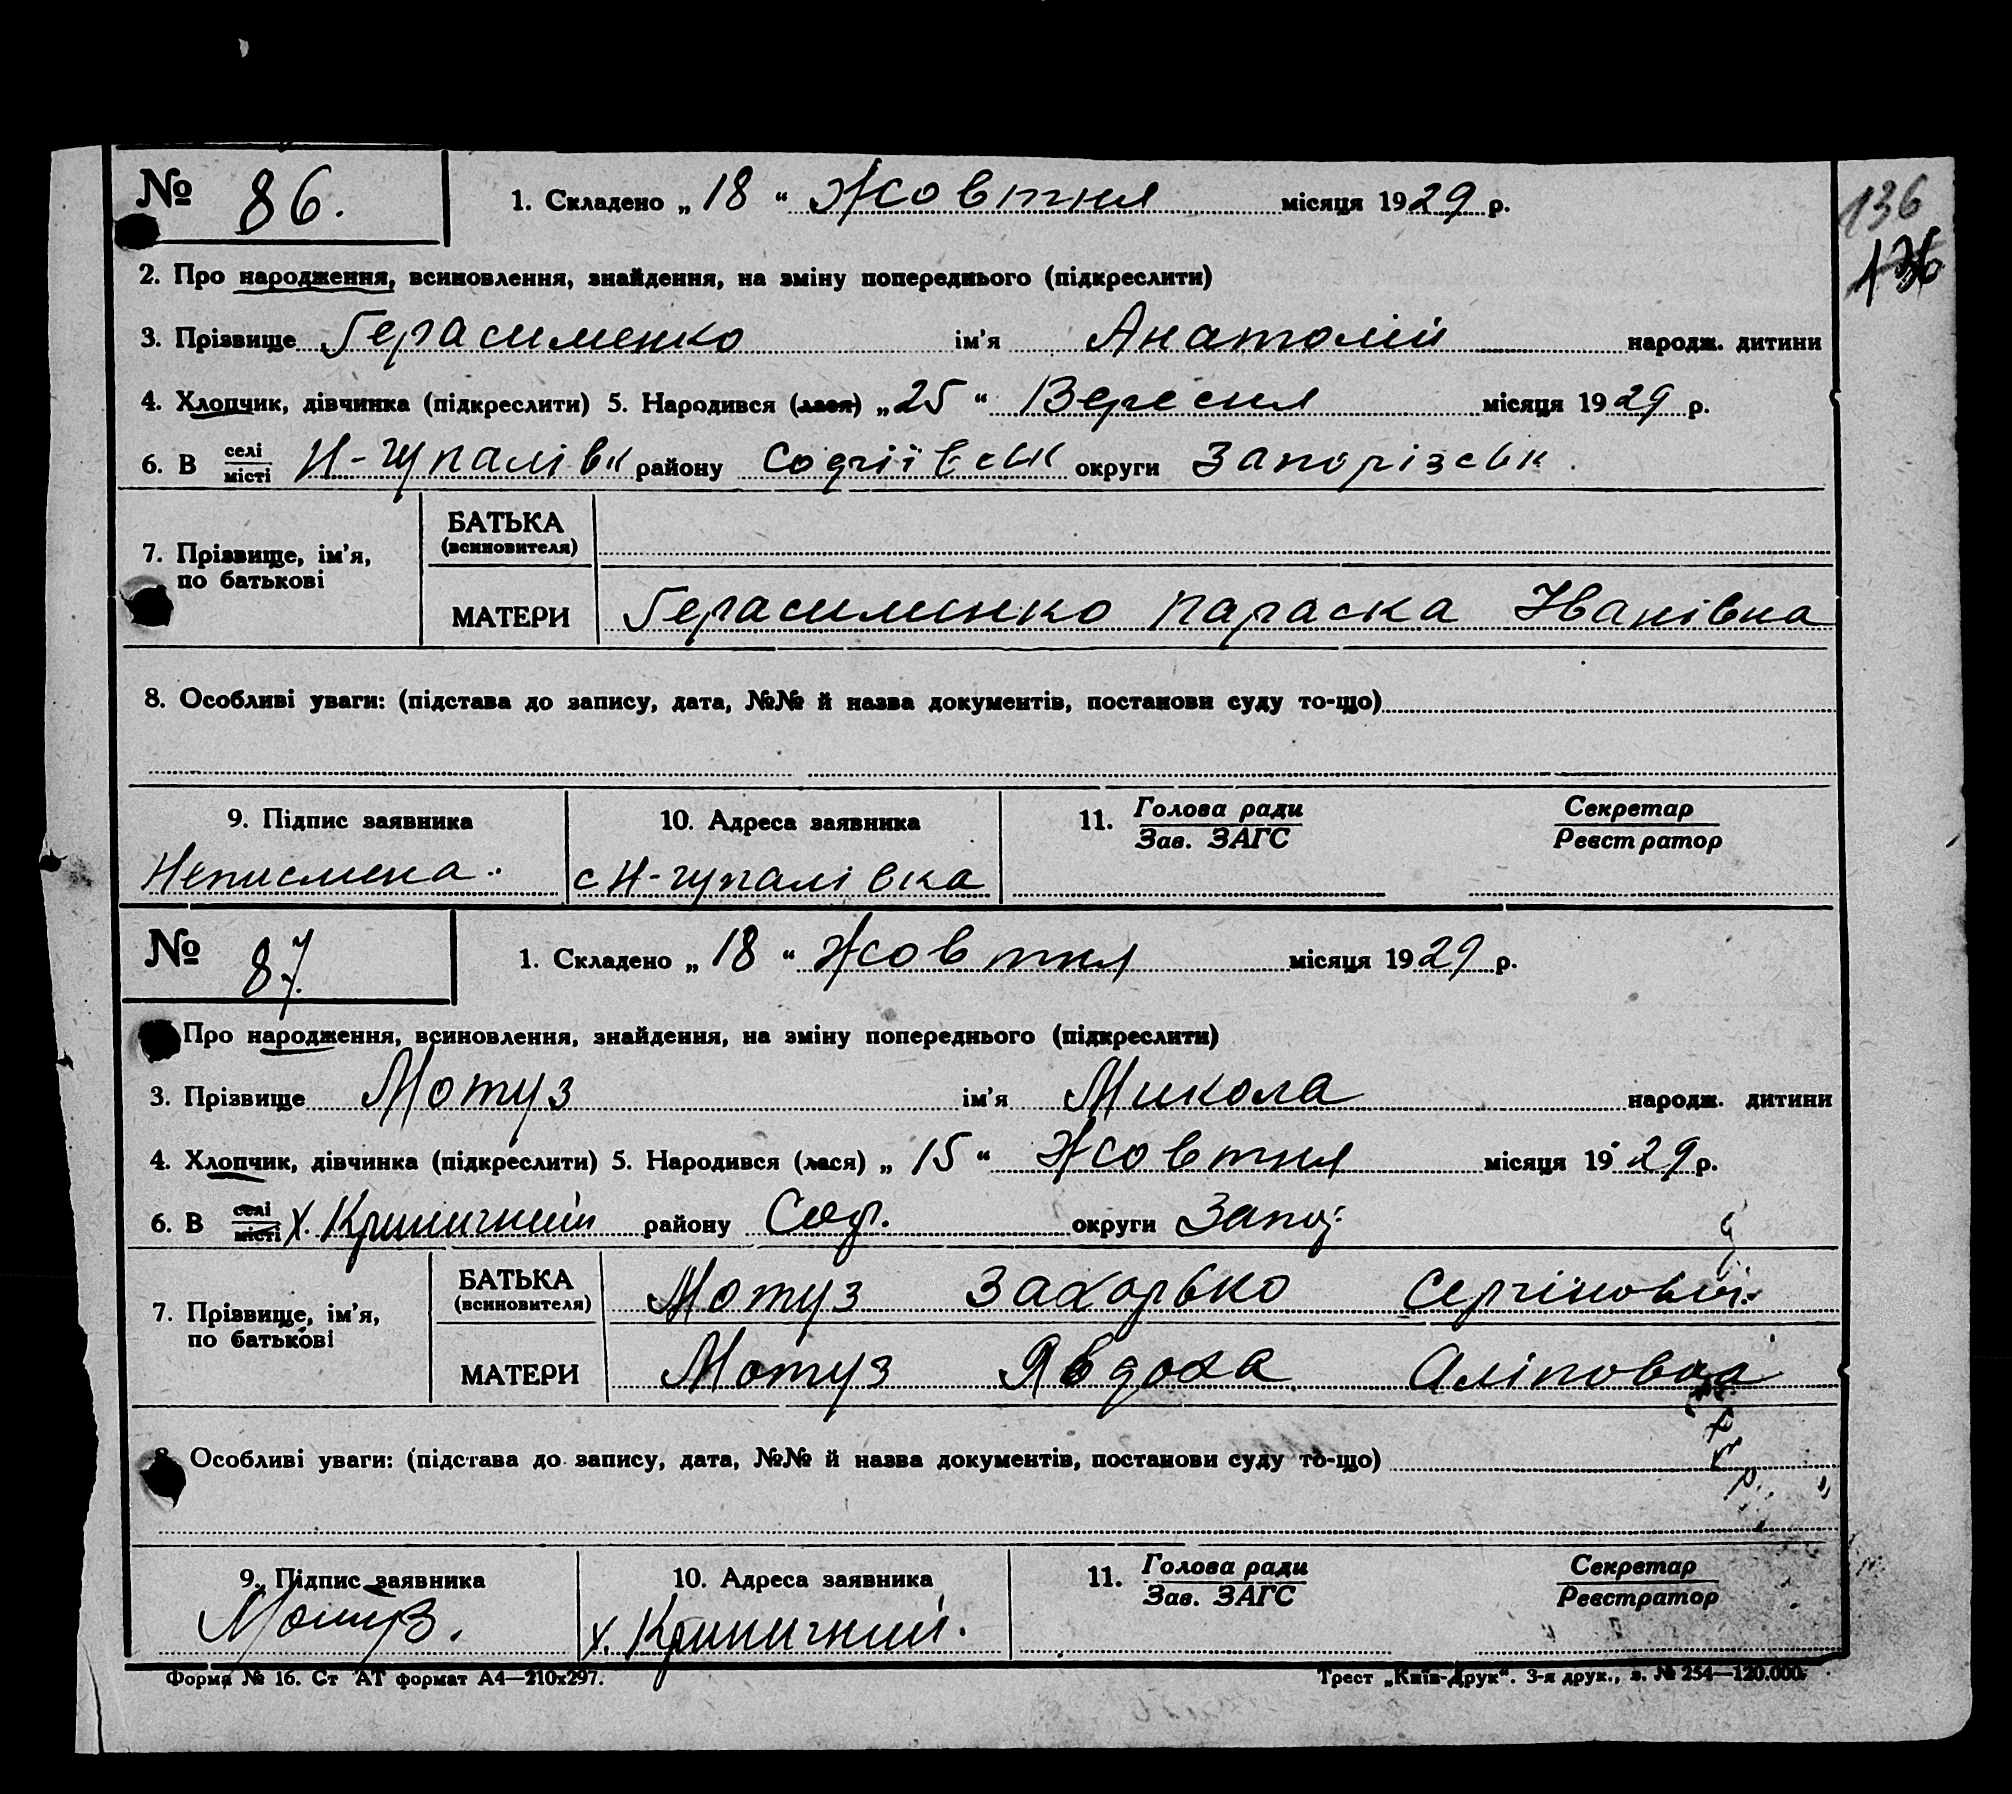 136
136
№ 86. 1. Складено „ 18 “ Жовтня місяця 1929 р.
2. Про народження, всиновлення, знайдення, на зміну попереднього (підкреслити)
3. Прізвище Герасименко ім’я Анатолій народж. дитини
4. Хлопчик, дівчинка (підкреслити) 5. Народився (лася) „ 25 “ Вересня місяця 1929 р.
6. В селі місті Н-Гупалівк району Софіївськ округи Запорізськ.
7. Прізвище, ім’я, по батькові
БАТЬКА (всиновителя)
МАТЕРИ Герасименко Параска Іванівна
8. Особливі уваги: (підстава до запису, дата, №№ й назва документів, постанови суду то-що)
9. Підпис заявника 10. Адреса заявника 11. Голова ради Зав. ЗАГС Секретар Реєстратор
Неписмена. с Н-гупалівка
№ 87. 1. Складено „ 18 “ Жовтня місяця 1929 р.
Про народження, всиновлення, знайдення, на зміну попереднього (підкреслити)
3. Прізвище Мотуз ім’я Микола народж. дитини
4. Хлопчик, дівчинка (підкреслити) 5. Народився (лася) „ 15 “ Жовтня місяця 1929 р.
6. В селі місті х. Криничний району Соф. округи Запор.
7. Прізвище, ім’я, по батькові
БАТЬКА (всиновителя) Мотуз Захорько
МАТЕРИ Мотуз Явдоха Аліповна
8. Особливі уваги: (підстава до запису, дата, №№ й назва документів, постанови суду то-що)
9. Підпис заявника 10. Адреса заявника 11. Голова ради Зав. ЗАГС Секретар Реєстратор
Мотуз. х. Криничний.
Форма № 16. Ст АТ формат А4—210х297. Трест „Київ-Друк“. 3-я друк., з. № 254—120.000.